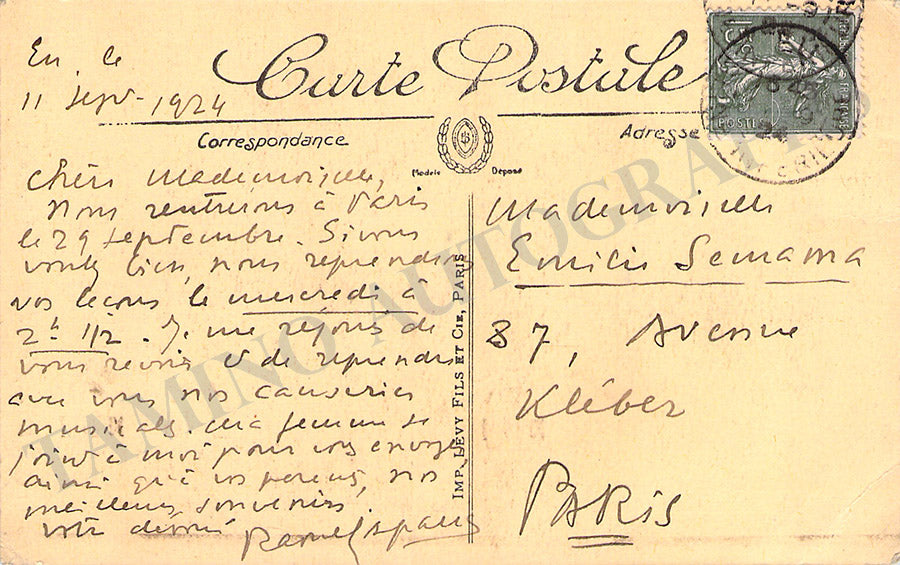 Carte Postale
En, le
11 Sept. 1924
Correspondance
Adresse
Modèle Déposé
Chère Mademoiselle,
Nous rentrerons à Paris
le 29 septembre. Si vous
voulez bien, nous reprendrons
vos leçons le mercredi à
2h 1/2. Je me réjouis de
vous revoir et de reprendre
avec vous nos causeries
musicales. Ma femme se
joint à moi pour vous envoyer
ainsi qu'à vos parents, nos
meilleurs souvenirs.
Votre dévoué
Mademoiselle
Emilie Semama
87, Avenue
Kléber
PARIS
IMP. LEVY FILS ET CIE, PARIS
15c
POSTES
TAMINO AUTOGRAPHS